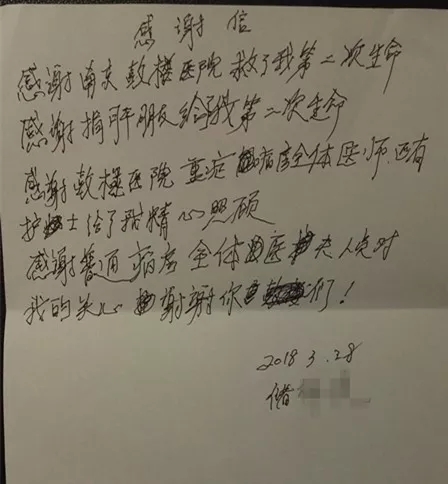 感谢信
感谢南京鼓楼医院救了我第二次生命
感谢捐肝朋友给我第二次生命
感谢鼓楼医院重症病房全体医师还有
护士给了我精心照顾
感谢普通病房全体医夫人员对
我的关心 谢谢你们！
2018 3.28
储